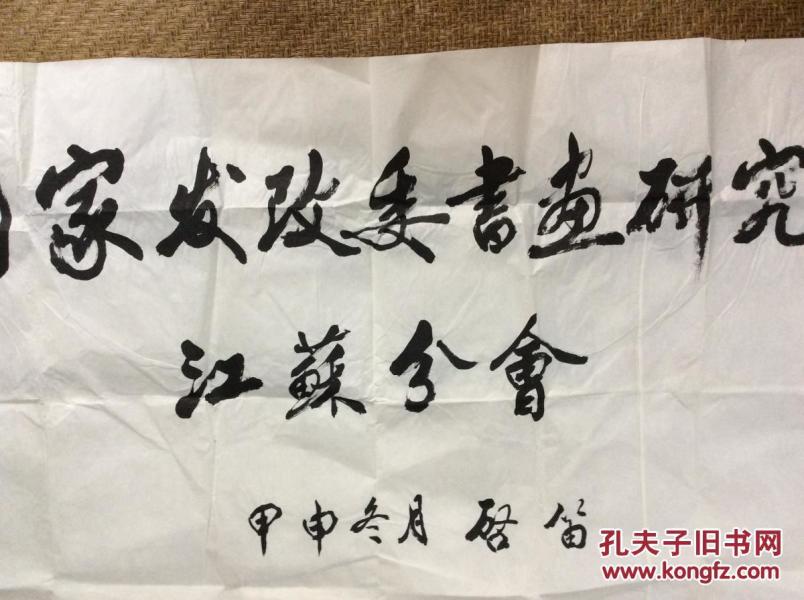 家发改委書畫研究
江蘇分會
甲申冬月 啓笛
孔夫子旧书网
www.kongfz.com